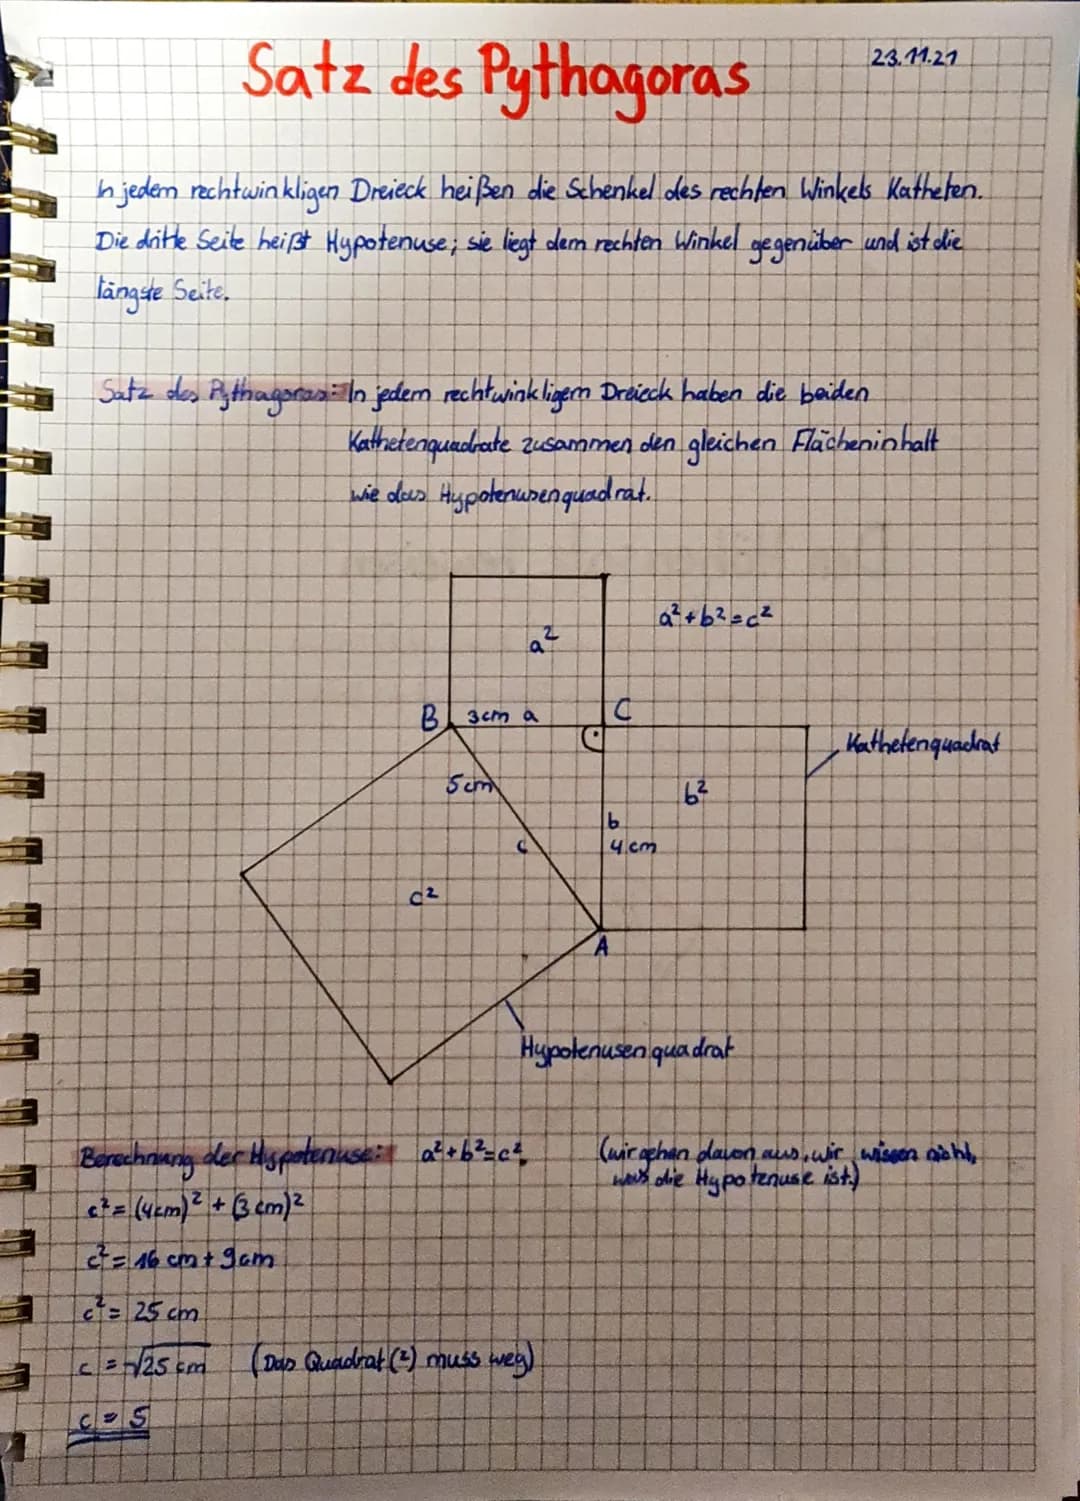 Satz des Pythagoras
23.11.21
In jedem rechtwinkligen Dreieck heißen die Schenkel des rechten Winkels Katheten.
Die dritte Seite heißt Hypotenuse; sie liegt dem rechten Winkel gegenüber und ist die
längste Seite.
Satz des Pythagoras: In jedem rechtwinkligem Dreieck haben die beiden
Kathetenquadrate zusammen den gleichen Flächeninhalt
wie das Hypotenusenquadrat.
a²+b²=c²
a²
B 3cm a C
Kathetenquadrat
5cm
b²
b
c 4cm
c²
A
Hypotenusenquadrat
Berechnung der Hypotenuse: a²+b²=c². (wir gehen davon aus, wir wissen nicht,
was die Hypotenuse ist.)
c²= (4cm)² + (3cm)²
c²= 16 cm + 9cm
c²= 25 cm
c = √25 cm (Das Quadrat (²) muss weg)
c = 5